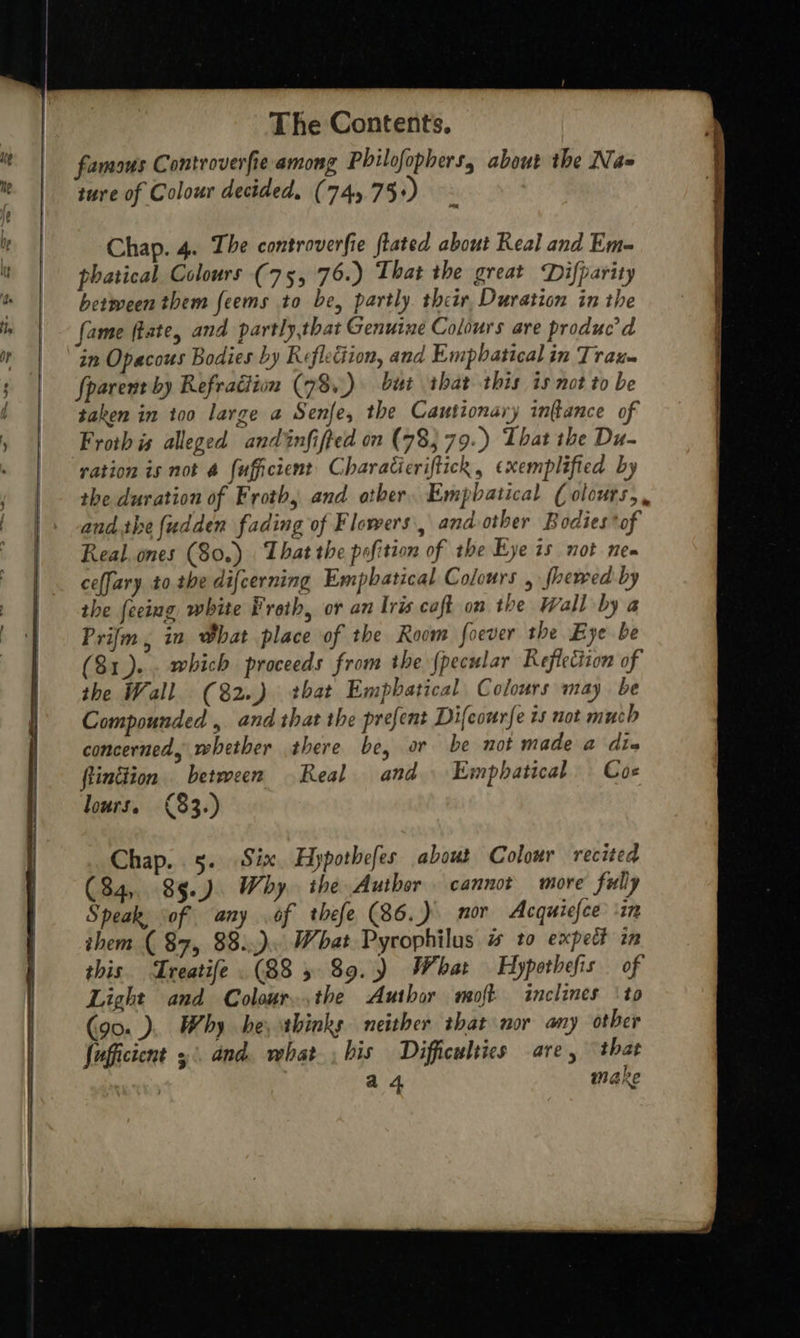 The Contents.
famous Controverſie among Philoſophers, about the Na-
ture of Colour decided. (74, 75.)
Chap. 4. The controverſie ſtated about Real and Em-
phatical Colours (75, 76.) That the great Diſparity
between them ſeems to be, partly their Duration in the
ſame ſtate, and partly, that Genuine Colours are produc'd
in Opacous Bodies by Reflection, and Emphatical in Tran-
ſparent by Refraction (78.) but that this is not to be
taken in too large a Senſe, the Cautionary inſtance of
Froth is alleged and inſiſted on (78, 79.) That the Du-
ration is not a ſufficient Characteriſtick, exemplified by
the duration of Froth, and other Emphatical Colours,
and the ſudden fading of Flowers, and other Bodies of
Real ones (80.) That the poſition of the Eye is not ne-
ceſſary to the diſcerning Emphatical Colours, ſhewed by
the ſeeing white Froth, or an Iris caſt on the Wall by a
Priſm, in what place of the Room ſoever the Eye be
(81). which proceeds from the ſpecular Reflection of
the Wall (82.) that Emphatical Colours may be
Compounded, and that the preſent Diſcourſe is not much
concerned, whether there be, or be not made a di-
ſtinction between Real and Emphatical Co-
lours. (83.)
Chap. 5. Six Hypotheſes about Colour recited
(84, 85.) Why the Author cannot more fully
Speak of any of theſe (86.) nor Acquieſce in
them (87, 88.) What Pyrophilus is to expect in
this Treatiſe (88, 89.) What Hypotheſis of
Light and Colour the Author moſt inclines to
(90.) Why he thinks neither that nor any other
ſufficient; and what his Difficulties are, that
a 4 make